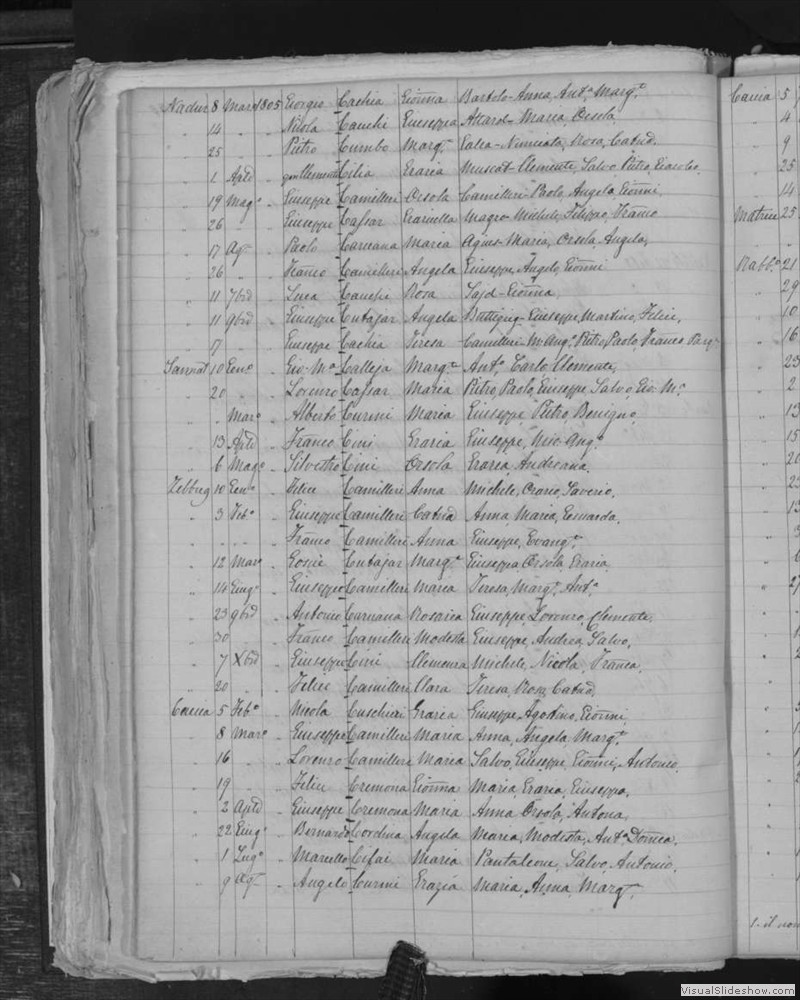 Nadur 8 Marº 1805 Giorgio Cachia Gionna Bartolo - Anna, Antª Margª
" 14 " " Nicola Cauchi Giuseppa Attard - Maria, Orsola
" 25 " " Pietro Cumbo Margª Galea - Nunciata, Rosa, Catnª
" 1 Aple " Clemente Cilia Grazia Muscat - Clemente, Salvo, Pietro, Giacobo
" 19 Magº " Giuseppe Camilleri Orsola Camilleri - Paolo, Angelo, Gionni
" 26 " Giuseppe Cassar Graziella Magro - Michele, Filippo, Franco
" 17 Agº " Paolo Caruana Maria Agius - Maria, Orsola, Angela
" 26 " " Franco Camilleri Angela Giuseppe, Angelo, Gionni
" 11 7bre " Luca Cauchi Rosa Said - Gionna
" 11 9bre " Giuseppe Cutajar Angela Buttigieg - Giuseppe, Martino, Felice,
" 17 Giuseppe Cachia Teresa Camilleri - M. Angº, Pietro Paolo, Franco
Sannat 10 Genº " Gio: Mª Calleja Margta Antº, Carlo, Clemente,
" 20 " " Lorenzo Cassar Maria Pietro, Paolo, Giuseppe, Salvo, Gio: Mª
" " Marº " Alberto Curmi Maria Giuseppe, Pietro, Benigno,
" 13 Aple " Franco Cini Grazia Giuseppe, Mic-Angº
" 6 Magº " Silvestro Cini Orsola Grazia, Andreana.
Zebbug 10 Genº " Felice Camilleri Anna Michele, Saverio,
" 3 Febº " Giuseppe Camilleri Catnª Anna, Maria,
" " " " Franco Camilleri Anna Giuseppe, Evangª
" 12 Marº " Cutajar Margª Giuseppa, Orsola, Grazia
" 14 Giugº " Giuseppe Camilleri Maria Teresa, Margª, Antª
" 23 9bre " Antonio Caruana Rosaria Giuseppe, Lorenzo, Clemente,
" 30 " Franco Camilleri Modesta Giuseppe, Andrea, Salvo,
" 7 Xbre " Giuseppe Cini Clemenza Michele, Nicola, Franca,
" 20 " " Felice Camilleri Clara Teresa, Rosa, Catnª
Caccia 5 Febº " Nicola Cuschieri Grazia Giuseppe, Agostino, Gionni,
" 8 Marº " Giuseppe Camilleri Maria Anna, Angela, Margª
" 16 " " Lorenzo Camilleri Maria Salvo, Giuseppe, Gionni, Antonio,
" 19 " " Felice Cremona Gionna Maria, Grazia, Giuseppa,
" 2 Aple " Giuseppe Cremona Maria Anna, Orsola, Antona,
" 22 Giugº " Bernardo Cordina Angela Maria, Modesta, Antª Domca.
" 1 Lugº " Marcello Cifai Maria Pantaleone, Salvo, Antonio,
" 9 Agº " Angelo Curmi Grazia Maria, Anna, Margª.
Caccia 5
" 4
" 9
" 25
" 14
Matrice 25
"
Rabbº 21
" 29
" 10
" 16
" 23
" 2
" 13
" 15
" 20
1. il nom
VisualSlideshow.com